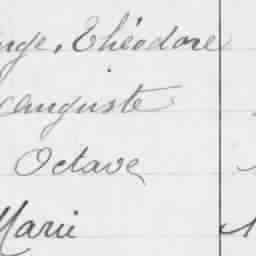 Théodore
auguste
Octave
Marie